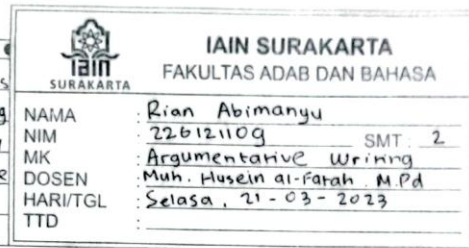 iain
SURAKARTA
IAIN SURAKARTA
FAKULTAS ADAB DAN BAHASA
NAMA : Rian Abimanyu
NIM : 226121109 SMT : 2
MK : Argumentative Writing
DOSEN : Muh. Husein al-Fatah . M.Pd
HARI/TGL : Selasa, 21-03-2023
TTD :